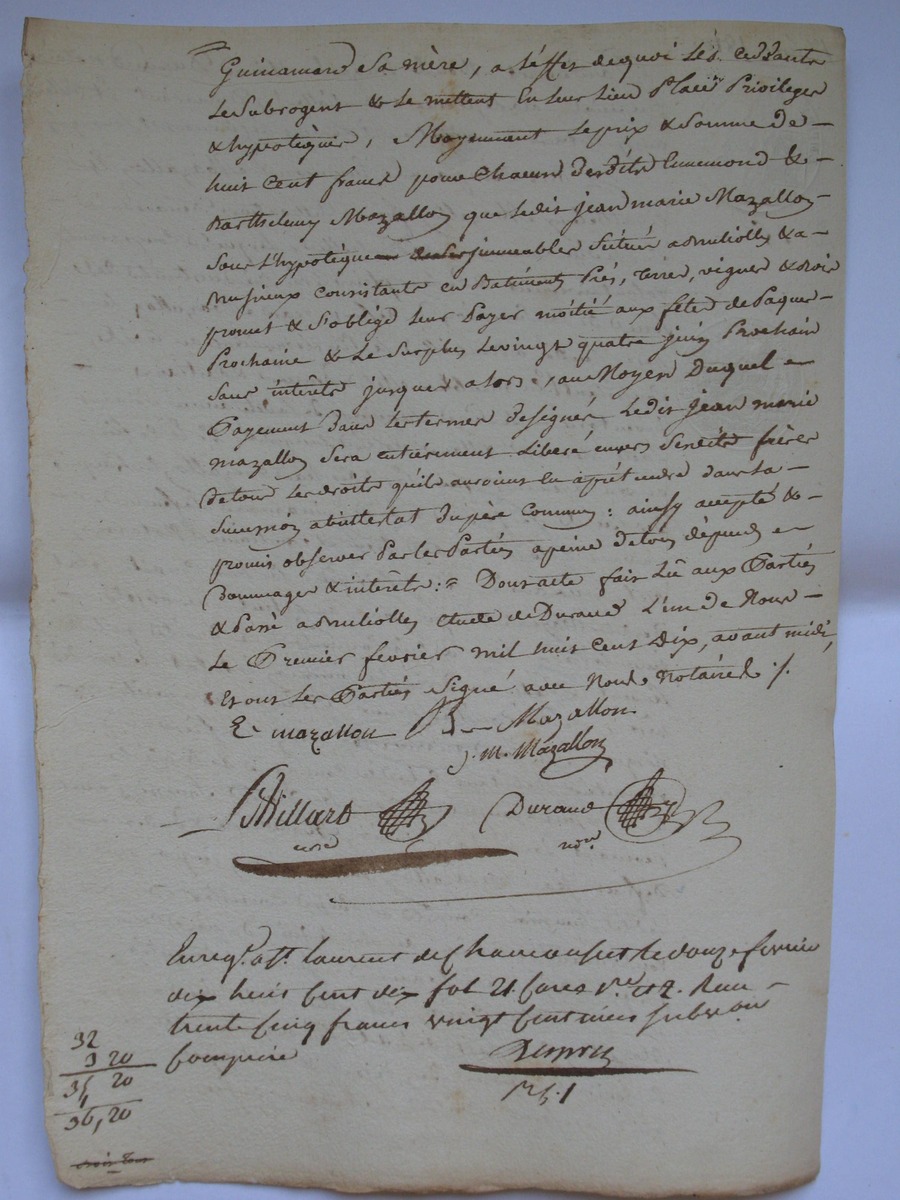 Guinamard Sa mère, a l'effet de quoi les d. cédants
Le Subrogent & Le mettent en Leur Lieu Place Privileges
& hypotèques, Moyennant Le prix & Somme de
huit Cent francs pour Chacun desdits Ennemond &
Barthelemy Mazallon que Ledit jean marie Mazallon
Sous L'hypotèque immeubles Situés a Brulioles & a
Musieux Consistants en Batiments Prés, terres, vignes & bois
promet & S'oblige Leur Payer moitié aux fêtes de Paques
Prochaine & Le Surplus Le vingt quatre juin Prochain
Sans intérêts jusques alors, au Moyen Duquel
Payement dans Les termes designés Ledit jean marie
mazallon Sera entièrement Libéré envers Sesdits frères
de tous Les droits qu'ils auroient eu a prétendre dans La
Succession abintestat du père Commun : ainsy accepté &
promis observer Par Les Parties a peine de tous dépends
Dommages & intérêts : = Dont acte fait Lû aux Parties
& Passé a Brulioles étude de Durand L'un de Nous
Le Premier février mil huit cent dix, avant midi,
Et ont Les Parties Signé avec Nous Notaires ./.
E. mazallon B. Mazallon
j. m. Mazallon
Billard Durand
nore
Enreg. a St. Laurent de Chamousset le douze fevrier
dix huit cent dix fol 21. cases 1re et 2. Recu
trente cinq francs vingt centimes subvon
comprise
32
3 20
35, 20
36, 20